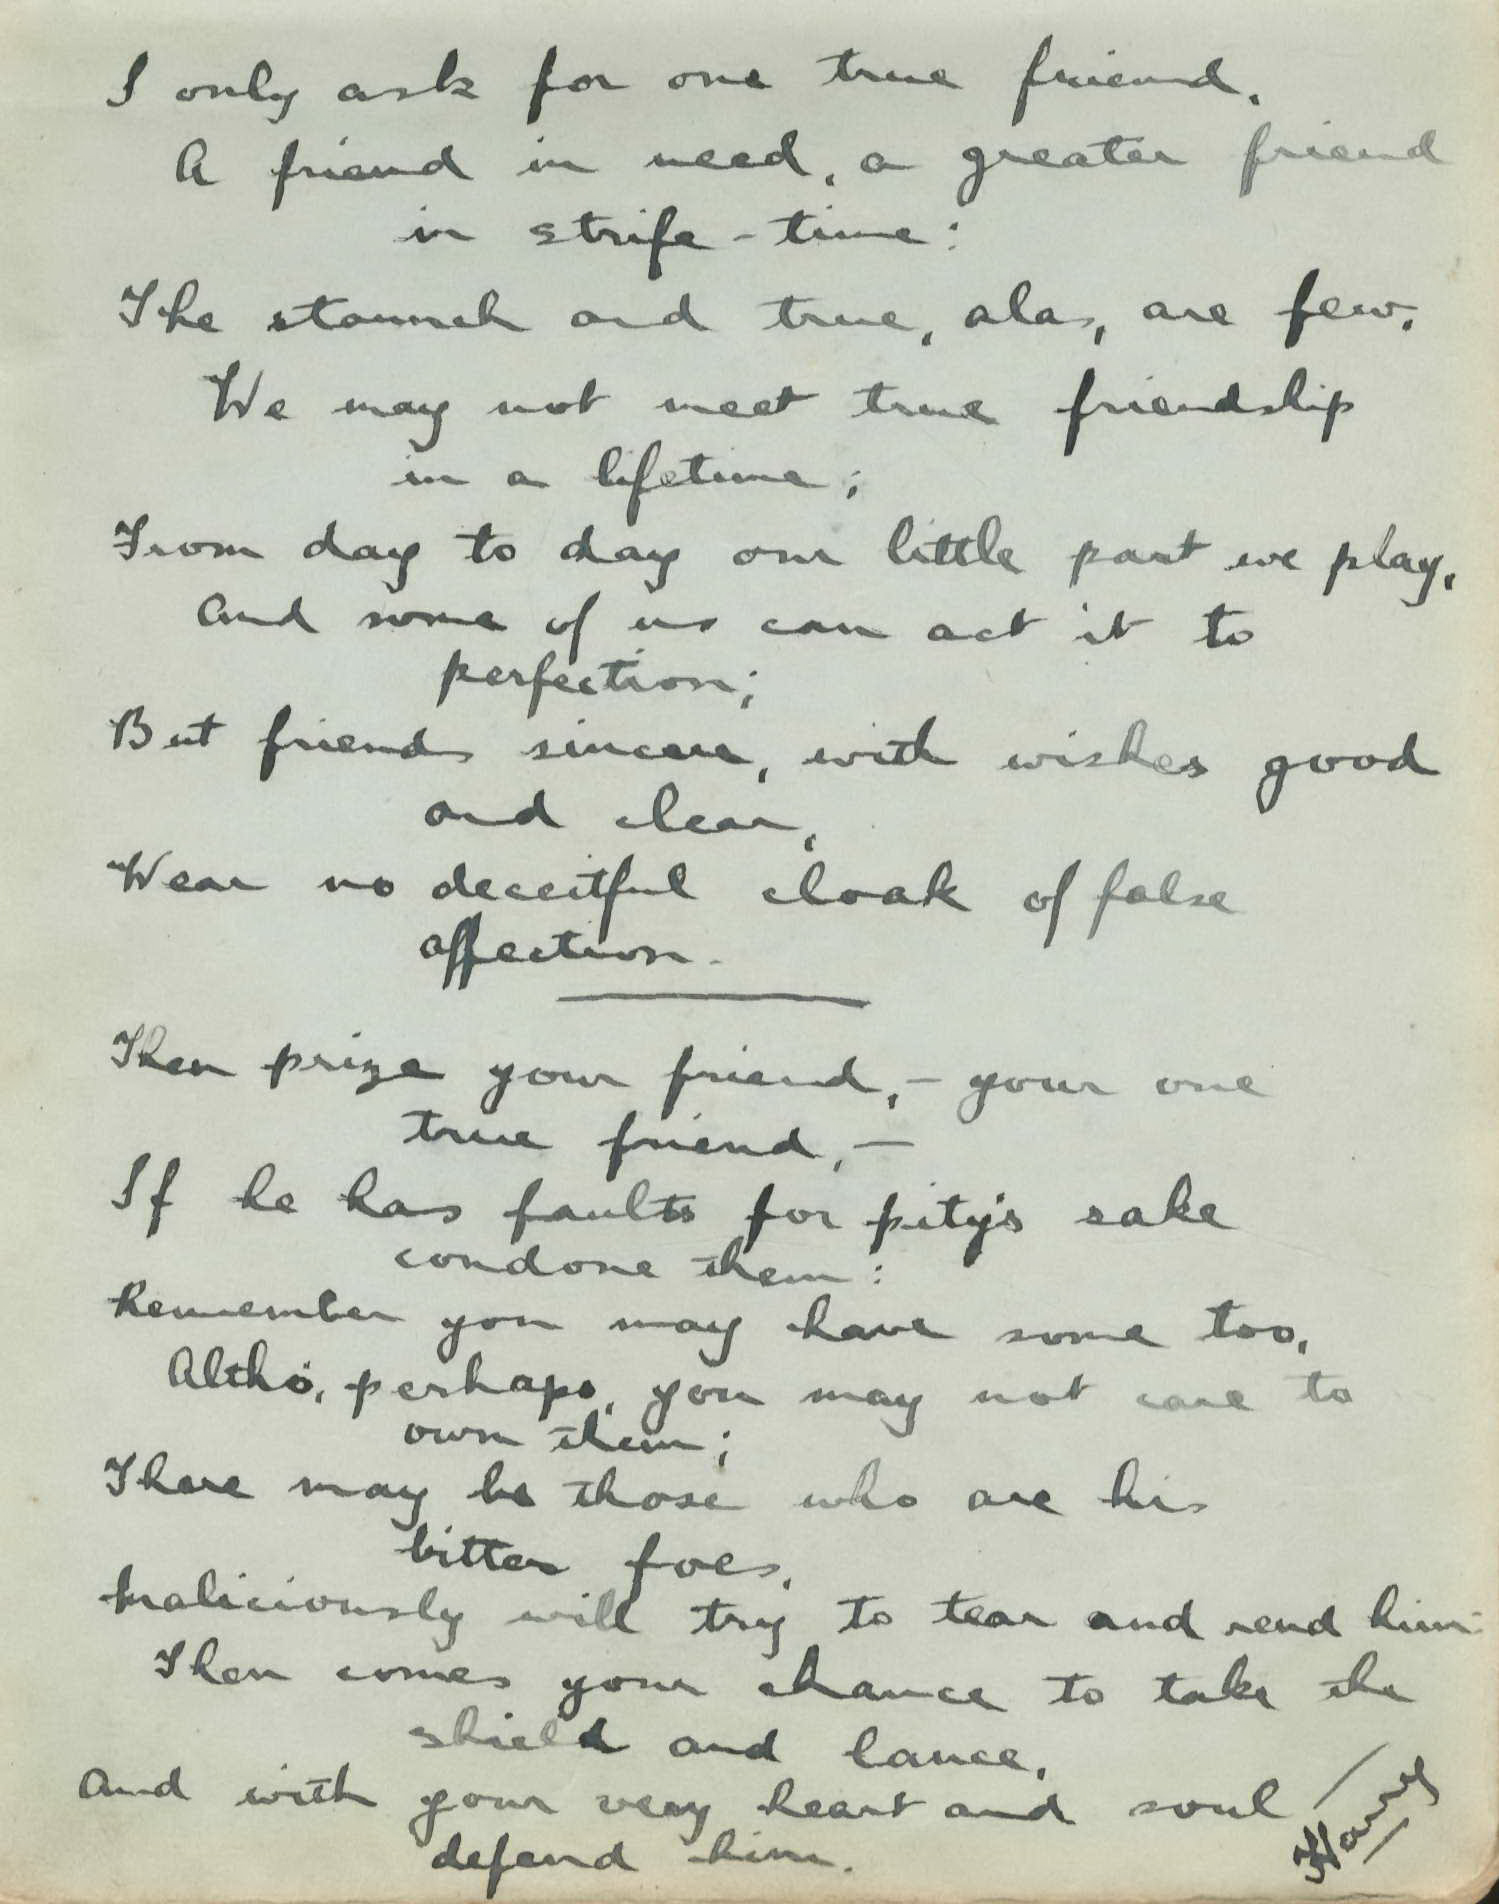 I only ask for one true friend,
A friend in need, a greater friend
in strife-time:
The staunch and true, alas, are few,
We may not meet true friendship
in a lifetime;
From day to day our little part we play,
And some of us can act it to
perfection;
But friends sincere, with wishes good
and clear,
Wear no deceitful cloak of false
affection.
Then prize your friend, - your one
true friend, -
If he has faults for pity's sake
condone them:
Remember you may have some too,
Altho', perhaps, you may not care to
own them;
There may be those who are his
bitter foes,
Maliciously will try to tear and rend him:
Then comes your chance to take the
shield and lance,
And with your very heart and soul
defend him.
Harry